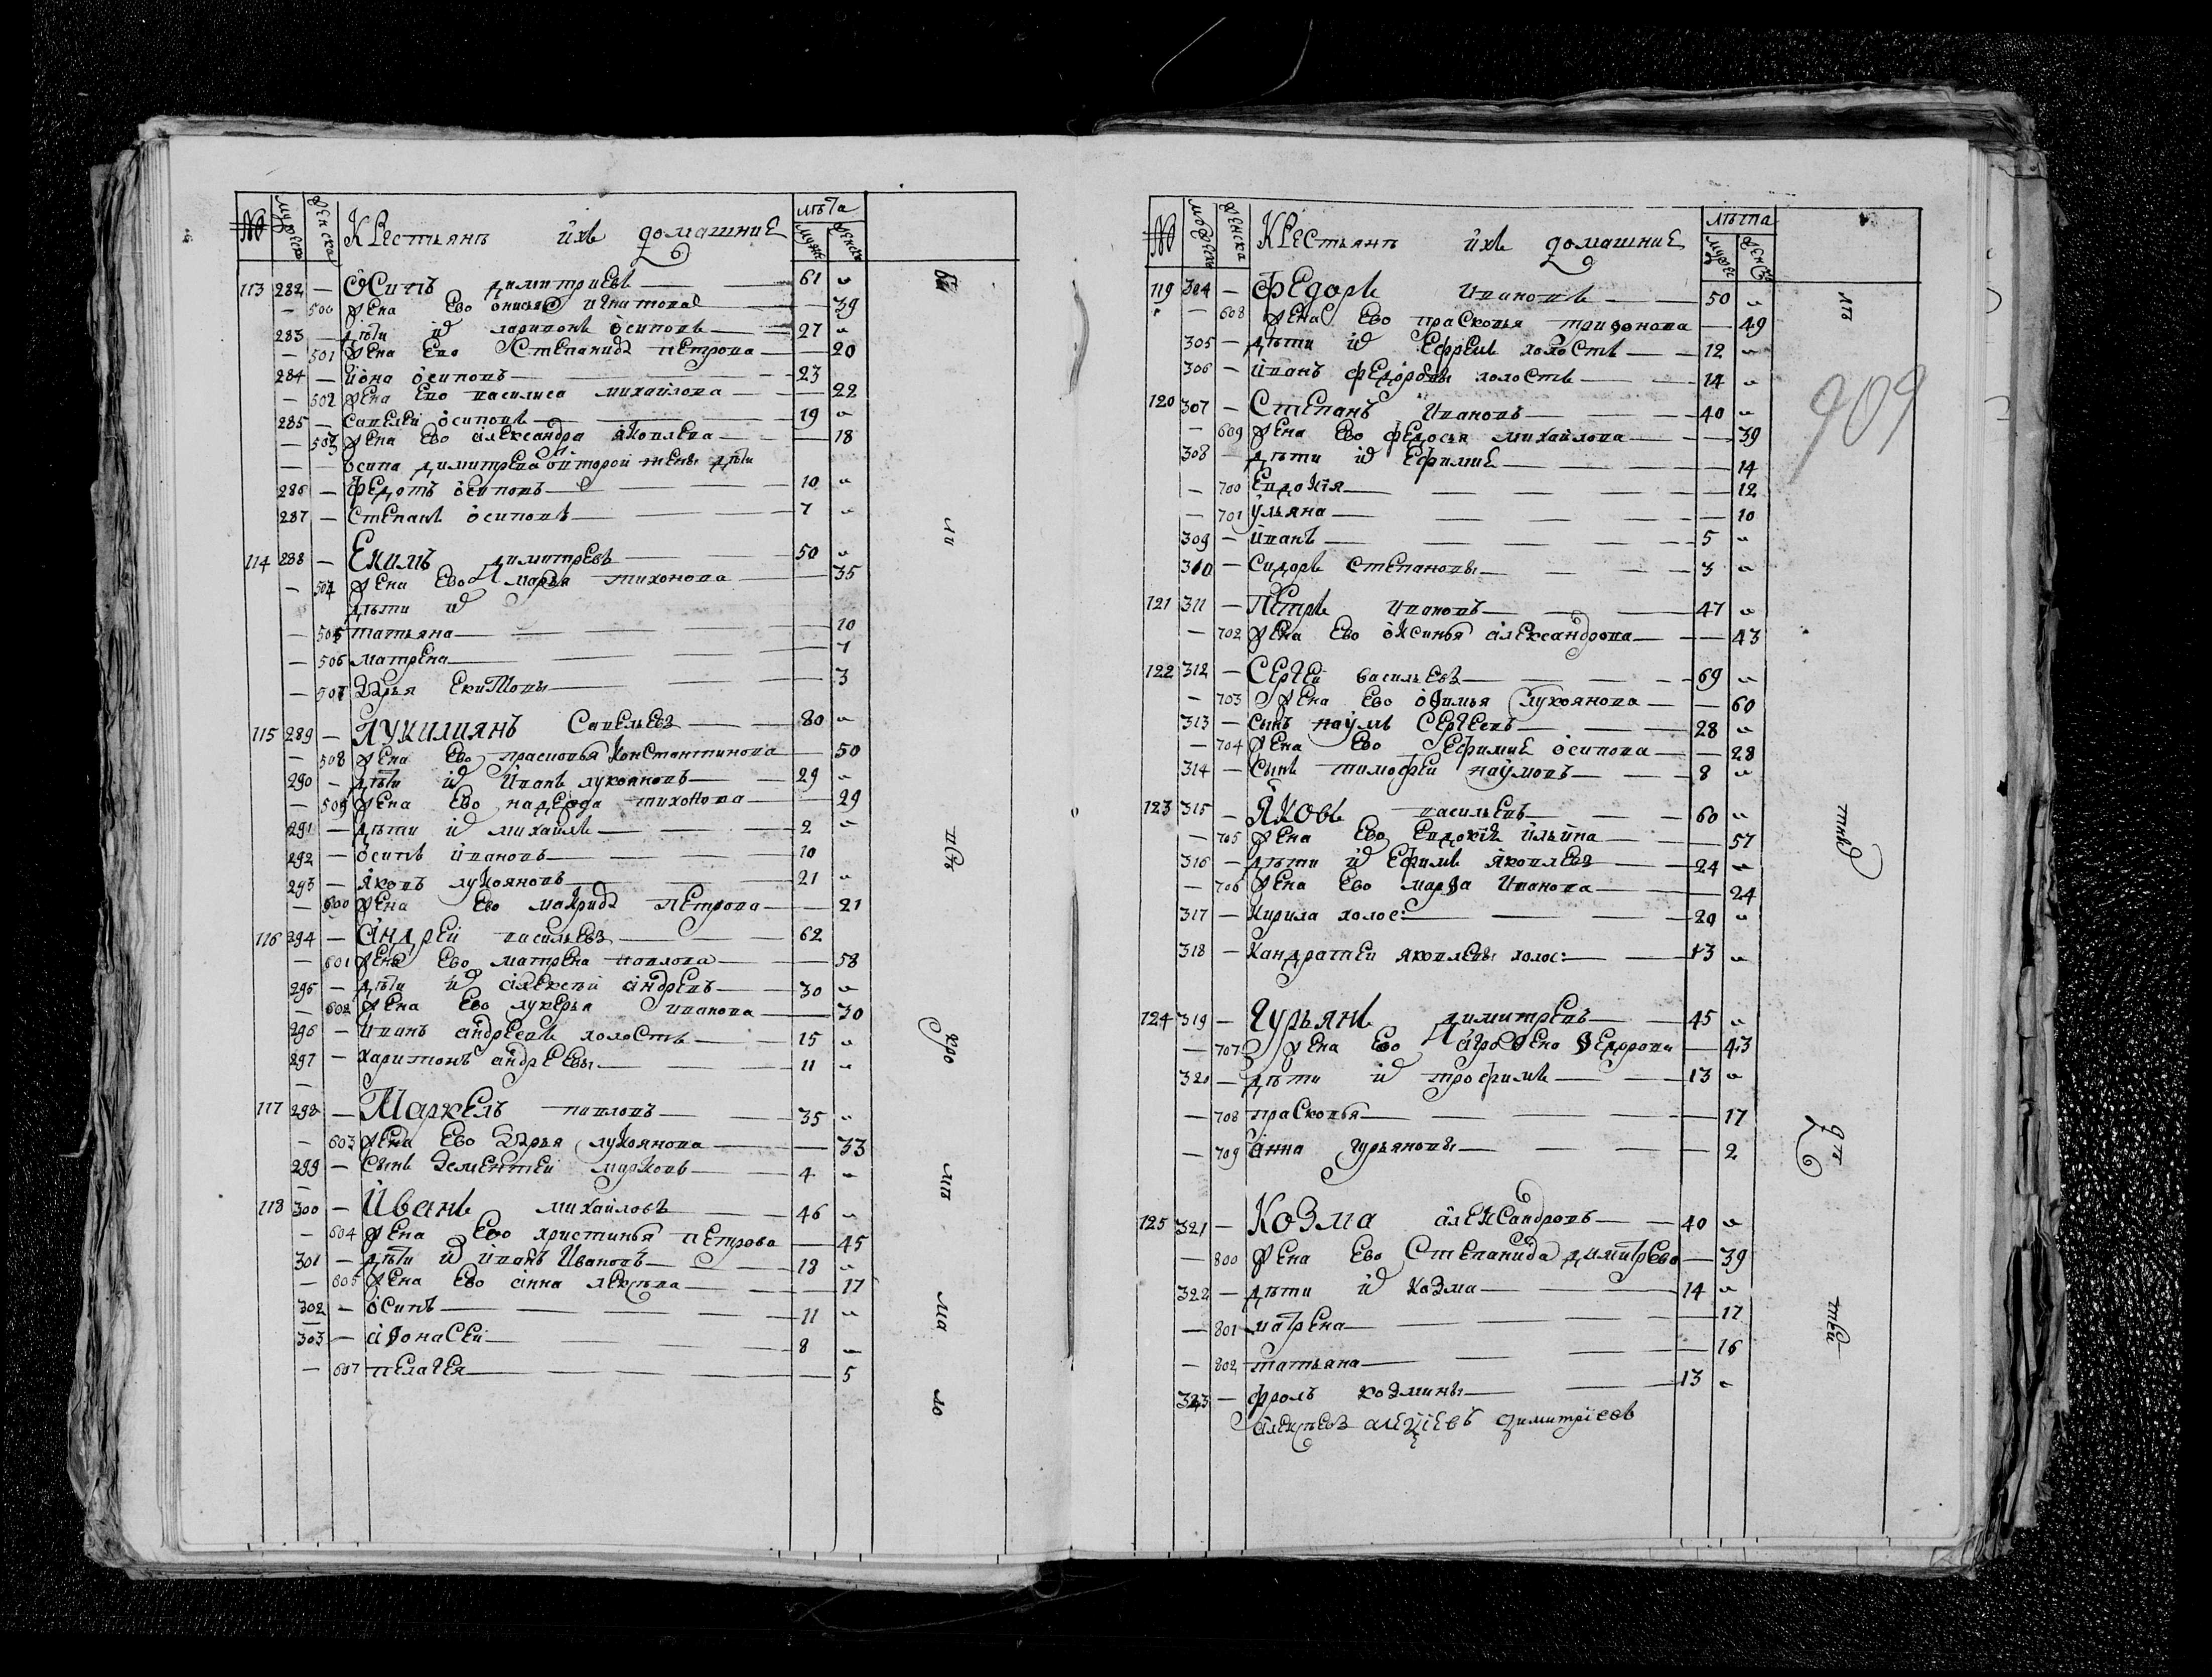 № мужеска женска Крестьянъ ихъ домашние лѣта мужеск женска
113 282 — Осипъ димитриевъ — 61 "
— 500 жена Ево онисья игнатова — 39
283 — дѣти их ларионъ осиповъ — 27 "
— 501 жена Ево Степанида петрова — 20
284 — иона осиповъ — 23
— 502 жена Ево василиса михайлова — 22
285 — савелей осиповъ — 19 "
— 503 жена Ево александра яковлева — 18
— — осипа димитрева от второй жены дѣти
286 — Федотъ осиповъ — 10 "
287 — Степанъ осиповъ — 7 "
114 288 — Екимъ димитревъ — 50 "
— 504 жена Ево марья тихонова — 35
дѣти их
— 505 татьяна — 10
— 506 матрена — 7
— 507 Дарья Екимовы — 3
115 289 — Лукиянъ Савельевъ — 80 "
— 508 жена Ево прасковья Константинова — 50
290 — дѣти их Иванъ лукояновъ — 29 "
— 509 жена Ево надежда тихонова — 29
291 — дѣти их михайлъ — 2 "
292 — осипъ ивановъ — 10
293 — яковъ лукояновъ — 21 "
— 600 жена Ево макрида петрова — 21
116 294 — Андрей васильевъ — 62
— 601 жена Ево матрена павлова — 58
295 — дѣти их алексѣй андревъ — 30 "
— 602 жена Ево лукерья иванова — 30
296 — иванъ андреевъ холостъ — 15 "
297 — харитонъ андреевы — 11 "
117 298 — Маркелъ павловъ — 35 "
— 603 жена Ево Дарья лукоянова — 33
299 — сынъ Дементей марковъ — 4 "
118 300 — Иванъ михайловъ — 46 "
— 604 жена Ево христинья петрова — 45
301 — дѣти их иванъ Ивановъ — 18 "
— 605 жена Ево анна лексѣва — 17
302 — осипъ — 11 "
303 — афонасей — 8 "
— 607 пелагея — 5
№ мужеска женска Крестьянъ ихъ домашние лѣта мужеск женска
119 304 — Федоръ Ивановъ — 50 "
— 608 жена Ево прасковья трифонова — 49
305 — дѣти их Ефремъ холостъ — 12 "
306 — иванъ федоровы холостъ — 14 "
120 307 — Степанъ Ивановъ — 40 "
— 609 жена Ево федосья михайлова — 39
308 — дѣти их Ефимие — 14
— 700 Евдокия — 12
— 701 ульяна — 10
309 — иванъ — 5 "
310 — Сидоръ степановы — 3 "
121 311 — Петръ Ивановъ — 47 "
— 702 жена Ево оксинья александрова — 43
122 312 — Сергей васильевъ — 69 "
— 703 жена Ево офимья лукоянова — 60
313 — сынъ наумъ Сергеевъ — 28 "
— 704 жена Ево Ефимие осипова — 28
314 — сынъ тимофей наумовъ — 8 "
123 315 — Яковъ васильевъ — 60 "
— 705 жена Ево Евдокия ильина — 57
316 — дѣти их Ефимъ яковлевъ — 24 "
— 706 жена Ево марфа Иванова — 24
317 — кирила холос: — 20 "
318 — Кандратей яковлевы холос: — 13 "
124 319 — Гурьянъ димитревъ — 45 "
— 707 жена Ево аграфена федорова — 43
320 — дѣти их трофимъ — 13 "
— 708 прасковья — 17
— 709 анна гурьяновы — 2
125 321 — Козма александровъ — 40 "
— 800 жена Ево Степанида димитрева — 39
322 — дѣти их козма — 14 "
— 801 матрена — 17
— 802 татьяна — 16
323 — фролъ козмины — 13 "
909